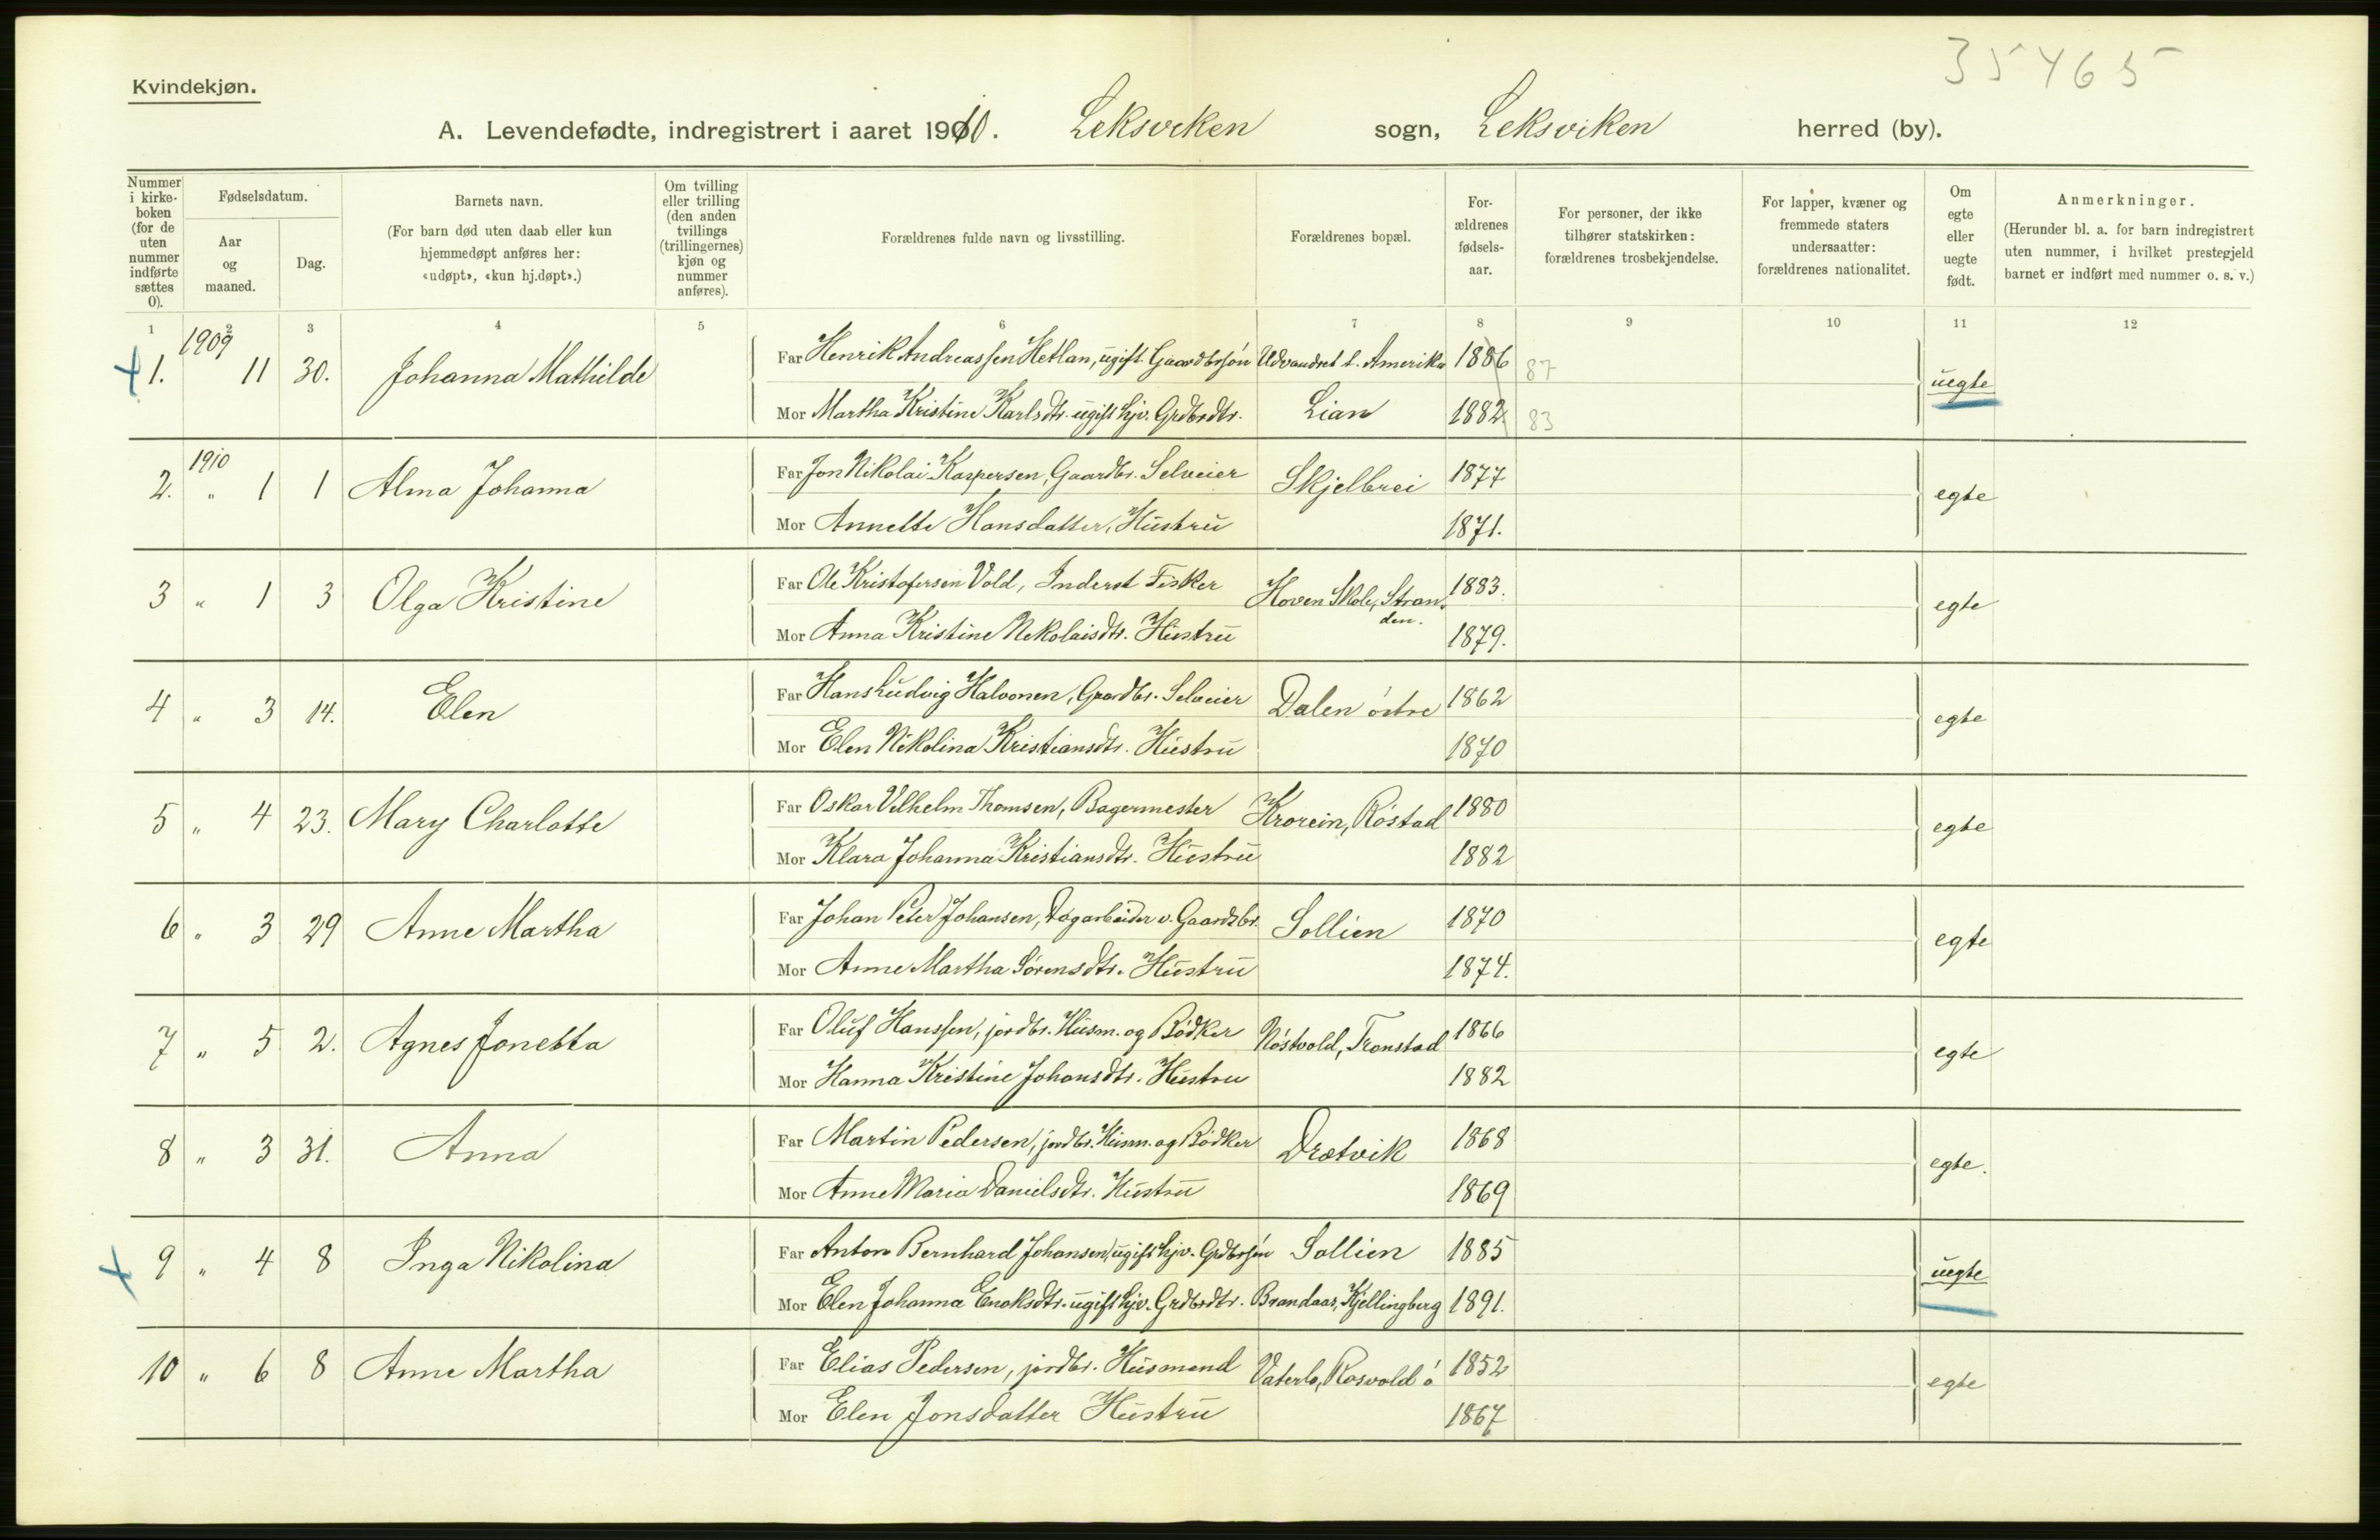 35465
Kvindekjøn.
A. Levendefødte, indregistrert i aaret 1910. Leksviken sogn, Leksviken herred (by).
Nummer i kirkeboken (for de uten nummer indførte sættes 0).
Fødselsdatum.
Aar og maaned.
Dag.
Barnets navn.
(For barn død uten daab eller kun hjemmedøpt anføres her: «udøpt», «kun hj.døpt».)
Om tvilling eller trilling (den anden tvillings (trillingernes) kjøn og nummer anføres).
Forældrenes fulde navn og livsstilling.
Forældrenes bopæl.
Forældrenes fødselsaar.
For personer, der ikke tilhører statskirken: forældrenes trosbekjendelse.
For lapper, kvæner og fremmede staters undersaatter: forældrenes nationalitet.
Om egte eller uegte født.
Anmerkninger.
(Herunder bl. a. for barn indregistrert uten nummer, i hvilket prestegjeld barnet er indført med nummer o. s. v.)
1 2 3 4 5 6 7 8 9 10 11 12
1909
1. 11 30. Johanna Mathilde Far Henrik Andreassen Hetlan, ugift Gaardbrsøn Udvandret t. Amerika 1886 87 uegte
Mor Martha Kristine Karlsdtr. ugift hjv. Grdbrdtr. Lian 1882 83
1910
2. " 1 1 Alma Johanna Far Jon Nikolai Kaspersen, Gaardbr. Selveier Skjelbrei 1877 egte
Mor Annette Hansdatter, Hustru 1871.
3 " 1 3 Olga Kristine Far Ole Kristofersen Vold, Inderst Fisker Hoven Skole, Stranden. 1883. egte
Mor Anna Kristine Nikolaisdtr. Hustru 1879.
4 " 3 14. Elen Far Hans Ludvig Halvorsen, Gaardbr. Selveier Dalen østre 1862 egte
Mor Elen Nikolina Kristiansdtr. Hustru 1870
5 " 4 23. Mary Charlotte Far Oskar Vilhelm Thomsen, Bagermester Krorein, Røstad 1880 egte
Mor Klara Johanna Kristiansdtr. Hustru 1882
6 " 3 29 Anne Martha Far Johan Peter Johansen, Dagarbeider v. Gaardsbr. Sollien 1870 egte
Mor Anne Martha Sørensdtr. Hustru 1874.
7 " 5 2. Agnes Jonetta Far Oluf Hanssen, jordbr. Husm. og Bødker Nøstvold, Tronstad 1866 egte
Mor Hanna Kristine Johansdtr. Hustru 1882
8 " 3 31. Anna Far Martin Pedersen, jordbr. Husm. og Bødker Drætvik 1868 egte.
Mor Anne Maria Danielsdtr. Hustru 1869
9 " 4 8 Inga Nikolina Far Anton Bernhard Johansen, ugift hjv. Grdbrsøn Sollien 1885 uegte
Mor Elen Johanna Enoksdtr. ugift hjv. Grdbrdtr. Brandaas, Kjellingberg 1891.
10 " 6 8 Anne Martha Far Elias Pedersen, jordbr. Husmand Vaterlo, Rosvold ø 1852 egte
Mor Elen Jonsdatter Hustru 1867